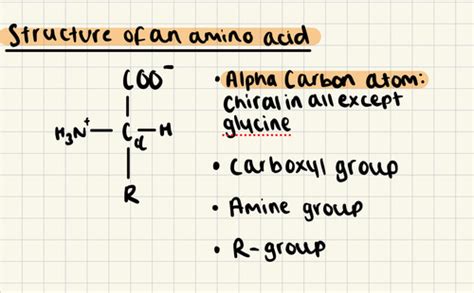 Structure of an amino acid
COO⁻
H₃N⁺—Cα—H
R
• Alpha Carbon atom:
Chiral in all except
glycine
• Carboxyl group
• Amine group
• R-group